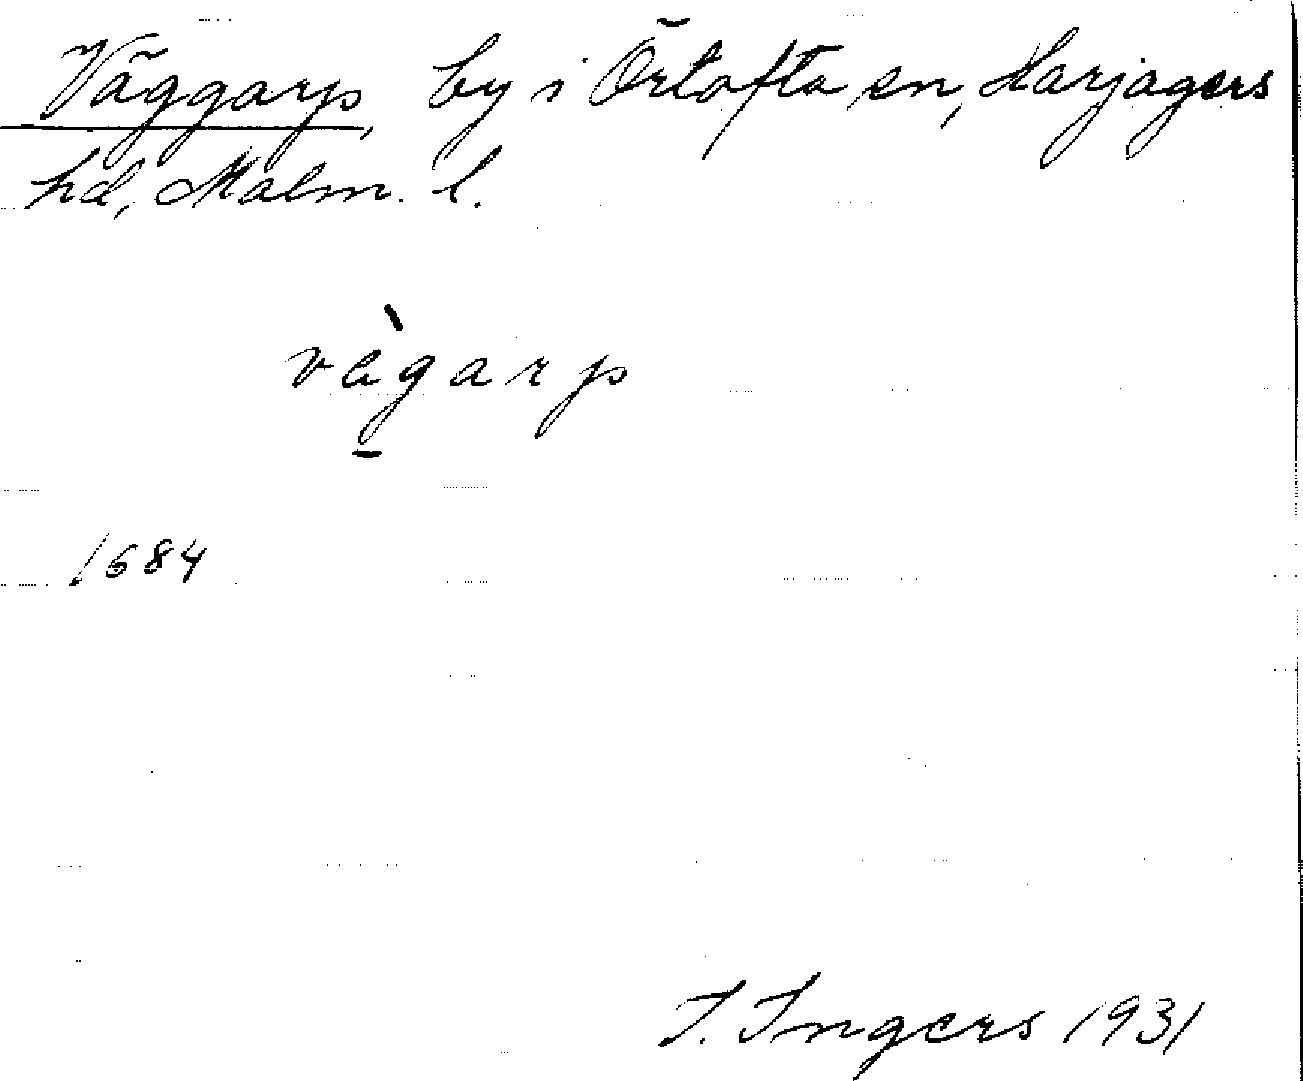 Väggarp, by i Örtofta sn, Harjagers
hd, Malm. l.
vägarp
1684
I. Ingers 1931